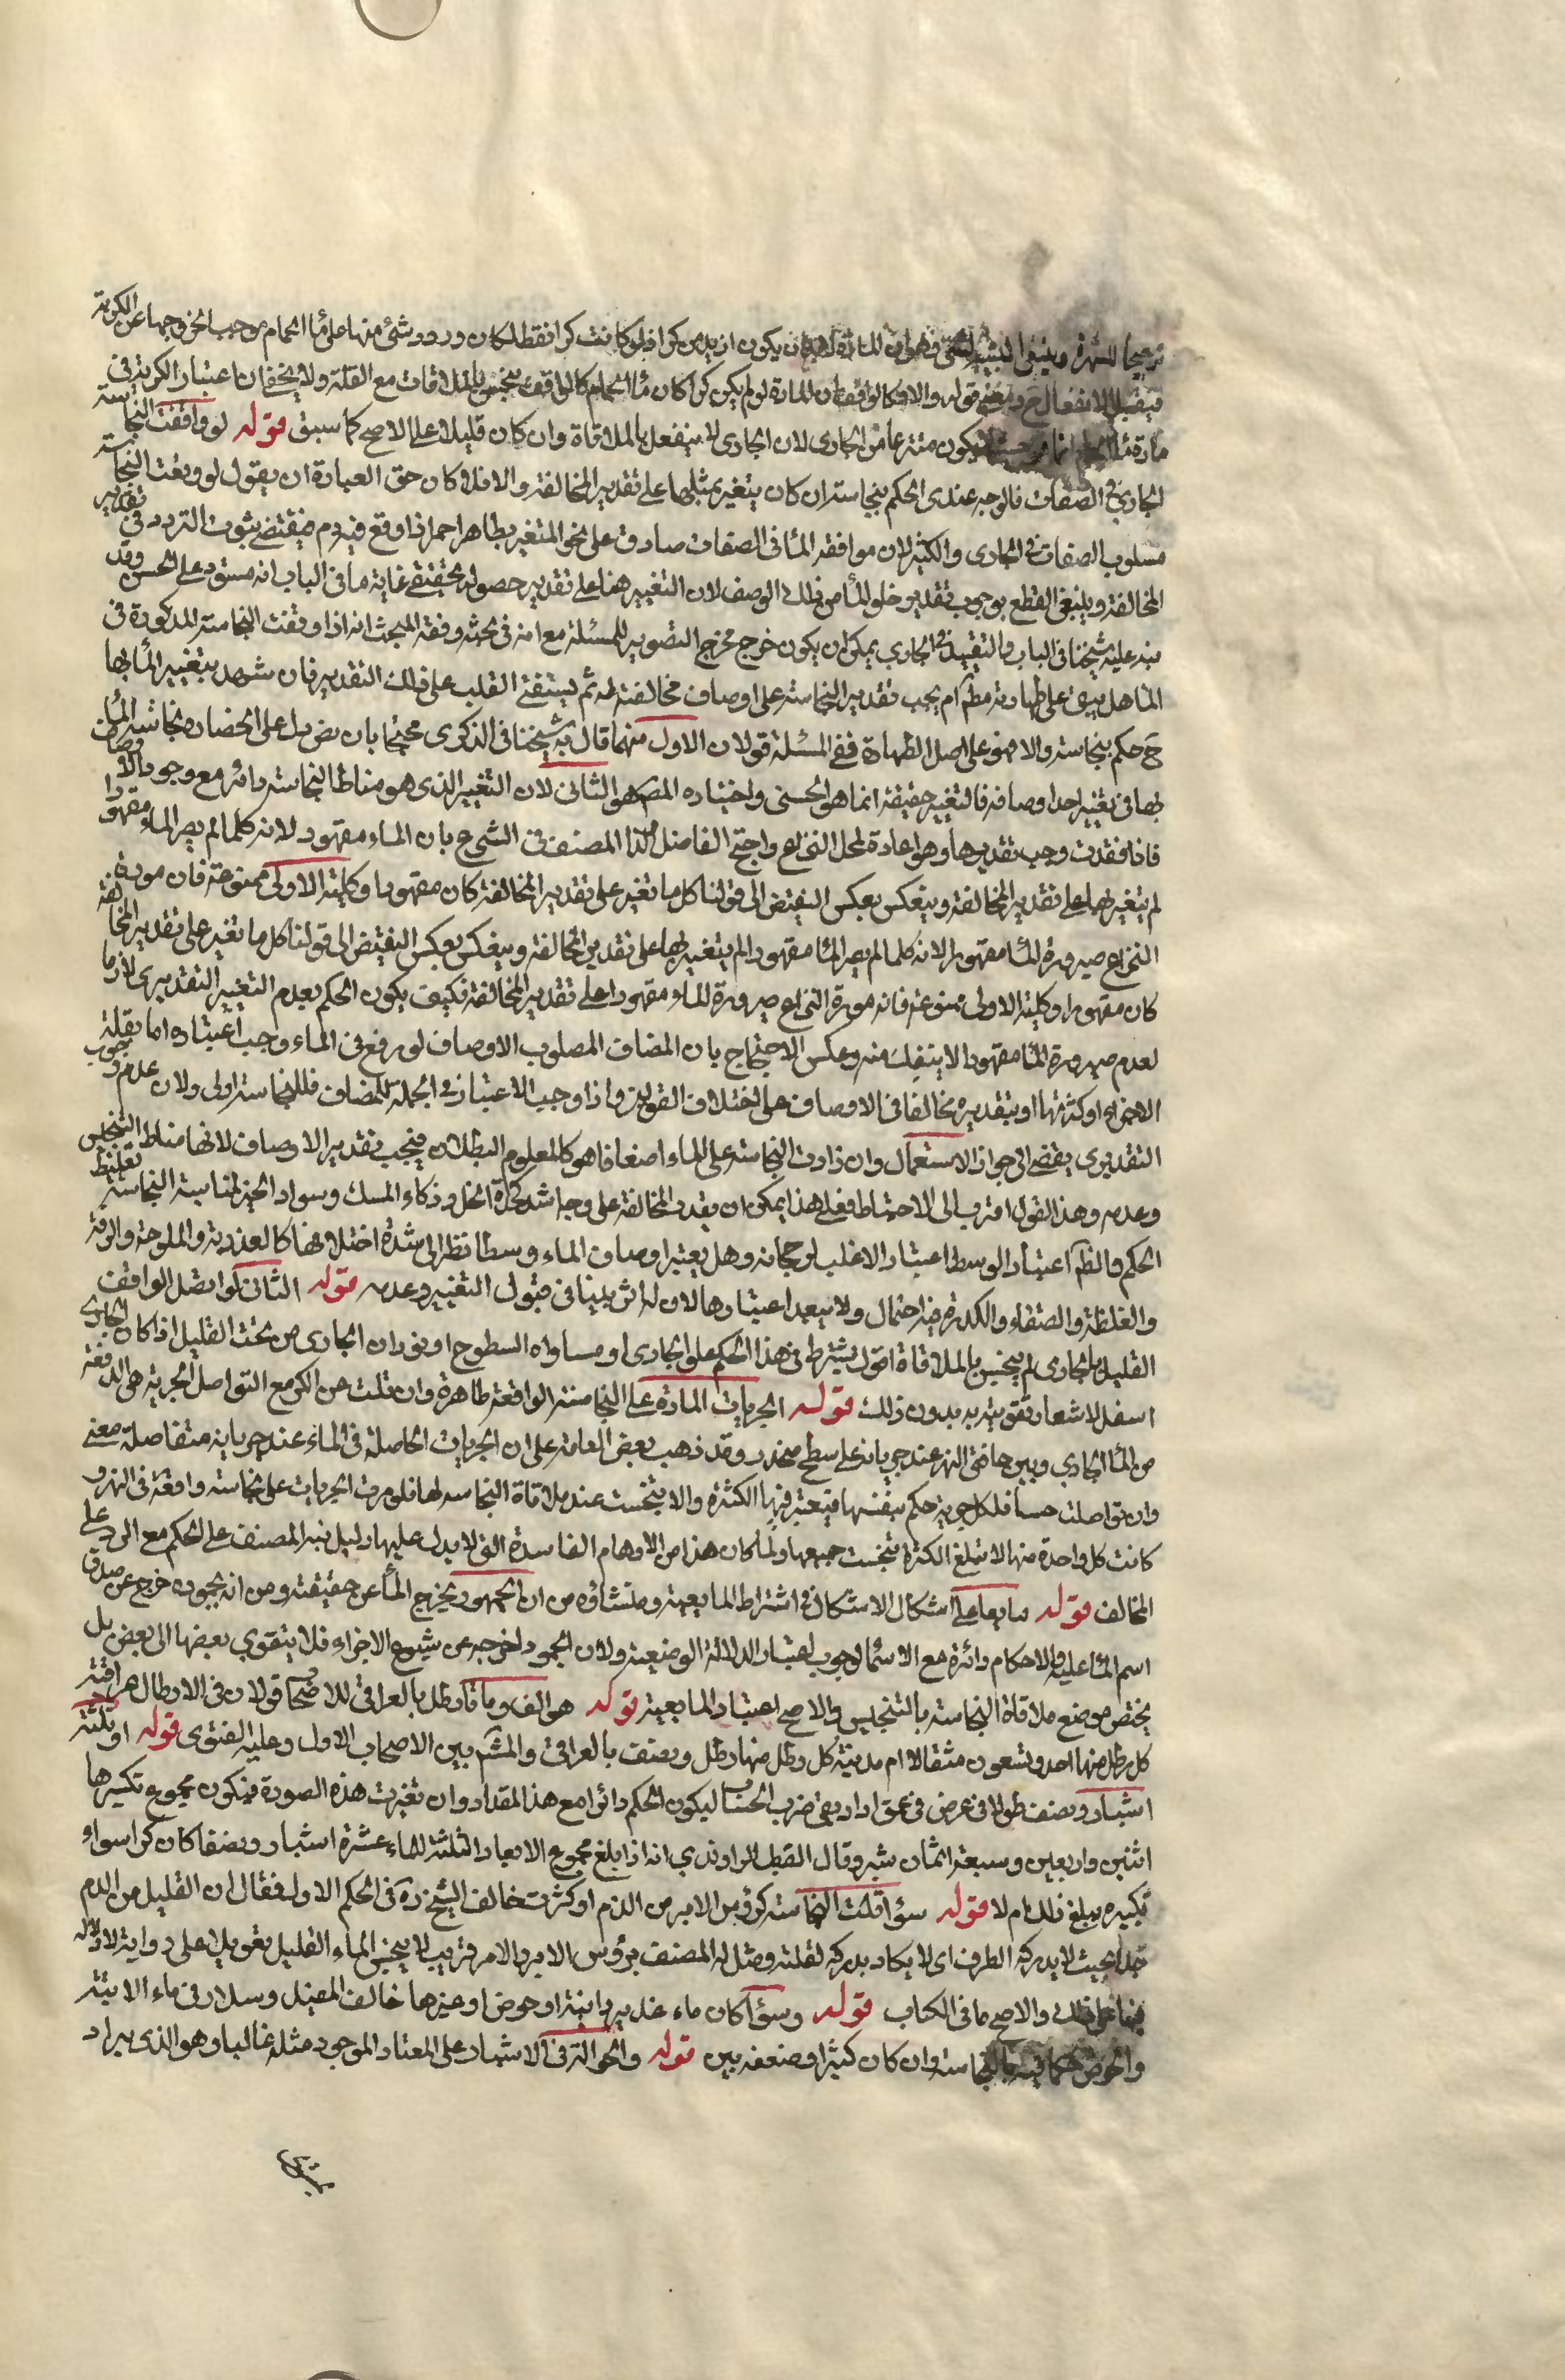 ترجيحا للشهرة وينبغي التنبيه لشئ وهو ان المادة لابد ان يكون ازيد من كر اذ لو كانت كرا فقط لكان ورود شئ منها على ماء الحمام موجب لخروجها عن الكرية
فيقبل الانفعال ح ومعنى قوله والا فكالواقف ان المادة لو لم يكن كرا كان ماء الحمام كالواقف ينجس بالملاقات مع القلة ولا يخفى ان اعتبار الكرية في
مادة الحمام انما هو حيث لا يكون منتزعا من الجاري لان الجاري لا ينفعل بالملاقاة وان كان قليلا على الاصح كما سبق قوله لو وافقت النجاسة
الجاري في الصفات فالوجه عندي الحكم بنجاسته ان كان يتغير بمثلها على تقدير المخالفة والا فلا كان حق العبارة ان يقول لو وقعت النجاسة
مسلوب الصفات في الجاري والكثير لان موافقة الماء في الصفات صادق على نحو المتغير بطاهر احمر اذا وقع فيه دم فيقتضي ثبوت التردد في تقدير
المخالفة وينبغي القطع بوجوب تقدير خلو الماء من ذلك الوصف لان التغيير هنا على تقدير حصوله تحقيقي غاية ما في الباب انه مستور عن الحس وقد
نبه عليه شيخنا في البيان والتقييد في الجاري يمكن ان يكون خرج مخرج التصوير للمسئلة مع امنه في بحثه وفقه المبحث انه اذا وقعت النجاسة المذكورة في
الماء هل يبقى على طهارته مط ام يجب تقدير النجاسة على اوصاف مخالفة له ثم يستفتي القلب على ذلك التقدير فان شهد بتغيير الماء بها
ح حكم بنجاسته والا فهو على اصل الطهارة ففي المسئلة قولان الاول منهما قال به شيخنا في الذكرى محتجا بان نص دل على انحصار نجاسة الماء
بها في تغيير احد اوصافه فالتغيير حقيقة انما هو الحسي واختيار المص هو الثاني لان التغيير الذي هو مناط النجاسة دائر مع وجود الاوصاف
فاذا فقدت وجب تقديرها وهو اعادة لمحل النزاع واحتج الفاضل ولد المصنف في الشرح بان الماء مقهور لانه كلما لم يصر الماء مقهورا
لم يتغير بها على تقدير المخالفة وينعكس بعكس النقيض الى قولنا كل ما تغير على تقدير المخالفة كان مقهورا وكلية الاولى ممنوعة فان مورد
النزاع صيرورة الماء مقهورا لانه كلما لم يصر الماء مقهورا لم يتغير بها على تقدير المخالفة وينعكس بعكس النقيض الى قولنا كل ما تغير على تقدير المخالفة
كان مقهورا وكلية الاولى ممنوعة فانه مورد النزاع صيرورة الماء مقهورا على تقدير المخالفة فكيف يكون الحكم بعدم التغيير التقديري لازما
لعدم صيرورة الماء مقهورا لا ينفك منه وعكس الاحتجاج بان المضاف المسلوب الاوصاف لو وقع في الماء وجب اعتباره اما بقلة
الاجزاء او كثرتها او بتقديره مخالفا في الاوصاف على اختلاف القولين واذا وجب الاعتبار في الجملة للمضاف فللنجاسة اولى ولان عدم وجوب
التقديري يفضي الى جواز الاستعمال وان زادت النجاسة على الماء اضعافا هو كالمعلوم البطلان فيجب تقدير الاوصاف لانها مناط التنجيس
وعدمه وهذا القول اقرب الى الاحتياط فعلى هذا يمكن ان يقدر المخالفة على وجه اشد كحدة الخل وذكاء المسك وسواد الحبر لمناسبة النجاسة تغليظ
الحكم والظ اعتبار الوسط اعتبار الاغلب لرجحانه وهل يعتبر اوصاف الماء وسطا نظرا الى شدة اختلافها كالعذوبة والملوحة والرقة
والغلظة والصفاء والكدرة فيه احتمال ولا يبعد اعتبارها لان له اثر بينا في قبول التغيير وعدمه قوله الثاني لو اتصل الواقف
القليل بالجاري لم ينجس بالملاقاة اقول يشترط في هذا الحكم علو الجاري او مساواة السطوح او فوران الجاري من تحت القليل اذا كان الجاري
اسفل لاشعار تقويته به بدون ذلك قوله الجريات المارة على النجاسة الواقعة طاهرة وان قلت عن الكر مع التواصل الجرية هي الدفعة
من الماء الجاري وبين حافتي النهر عند جريانه على سطح منحدر وقد ذهب بعض العامة على ان الجريات الحاصلة في الماء عند جريانه متفاصلة معنى
وان تواصلت حسا فلكل جرية حكم بنفسها فيعتبر فيها الكثرة والا ينجست عند ملاقاة النجاسه لها فلو مرت الجريات على نجاسة واقعة في النهر و
كانت كل واحدة منها لا تبلغ الكثرة تنجست جميعها ولما كان هذا من الاوهام الفاسدة التي لا يدل عليها دليل نبه المصنف على الحكم مع الرد على
المخالف قوله مايعا على اشكال الاشكال في اشتراط المايعية ومنشاؤه من ان الجمود يخرج الماء عن حقيقته ومن انه بجموده خرج عن صدق
اسم الماء عليه والاحكام دائرة مع الاسماء لوجوب اعتبار الدلالة الوضعية ولان الجمود اخرجه عن شيوع الاجزاء فلا يتقوي بعضها الى بعض بل
يختص موضع ملاقاة النجاسة بالتنجيس والاصح اعتبار المايعية قوله هو الف ومائتا رطل بالعراقي للاصحاب قولان في الارطال هل هي عراقية
كل رطل منها احد وتسعون مثقالا ام مدنية كل رطل منها رطل ونصف بالعراقي والمش بين الاصحاب الاول وعليه الفتوى قوله او ثلثة
اشبار ونصف طولا في عرض في عمق اراد بقي ضرب الحساب ليكون الحكم دائرا مع هذا المقدار وان تغيرت هذه الصورة فيكون مجموع تكسيرها
اثنين واربعين وسبعة اثمان شبر وقال القطب الراوندي انه اذا بلغ مجموع الابعاد الثلثة للماء عشرة اشبار ونصفا كان كرا سواء
تكسيره يبلغ ذلك ام لا قوله سواء قلت النجاسة كرؤس الابر من الدم او كثرت خالف الشيخ ره في الحكم الاول فقال ان القليل من الدم
جدا بحيث لا يدركه الطرف اي لا يكاد يدركه لقلته ومثل له المصنف برؤس الابر والامر قريب لا ينجس الماء القليل تعويلا على رواية لا دلالة
فيها على ذلك والاصح ما في الكتاب قوله وسواء كان ماء غدير او انية او حوض او غيرها خالف المفيد وسلار في ماء الانية
والحوض فحكما فيه بالنجاسة وان كان كثيرا وضعفه بين قوله والحوالة في الاشبار على المعتاد الموجود مثله غالبا وهو الذي يراد